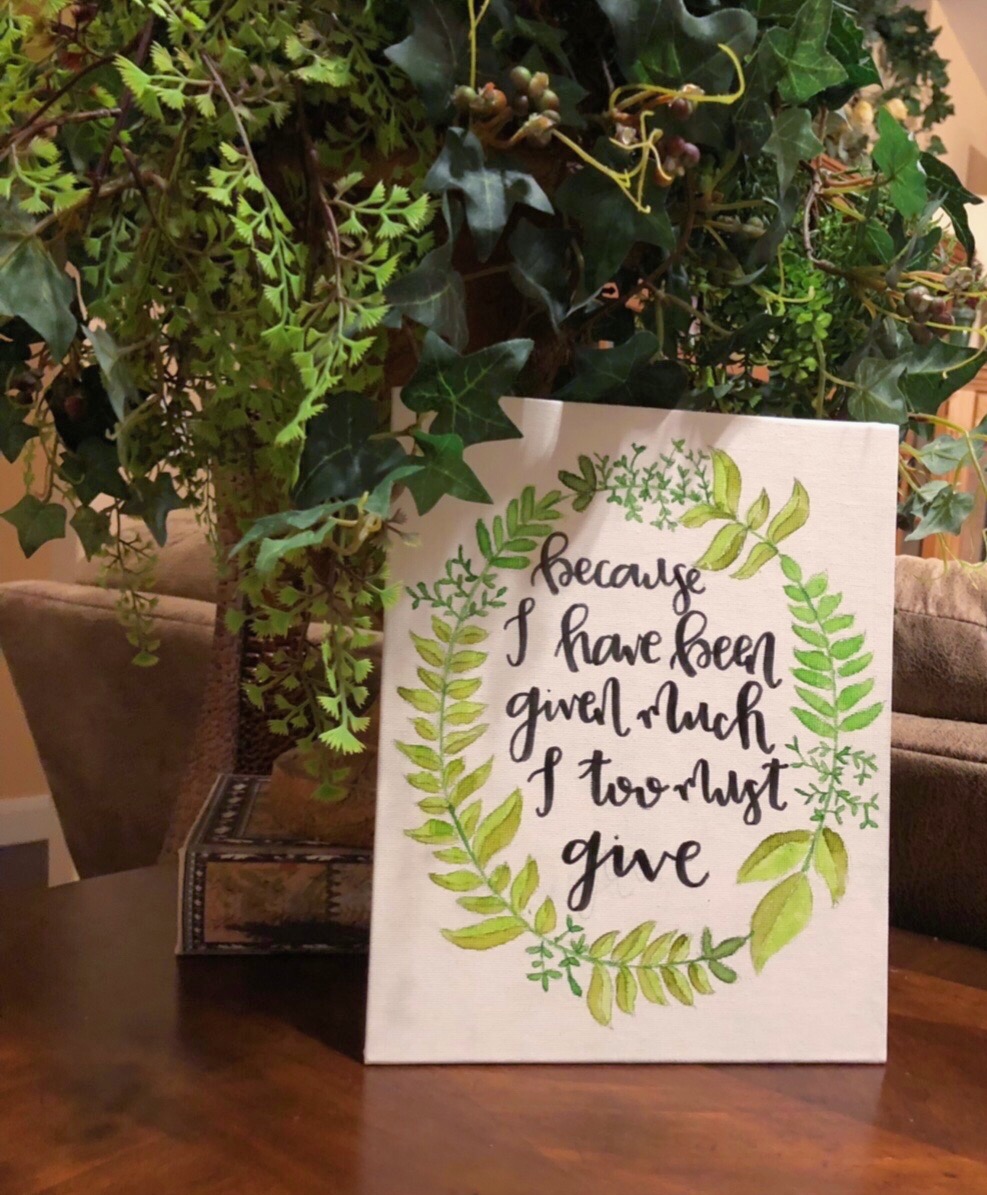 because
I have been
given much
I too must
give